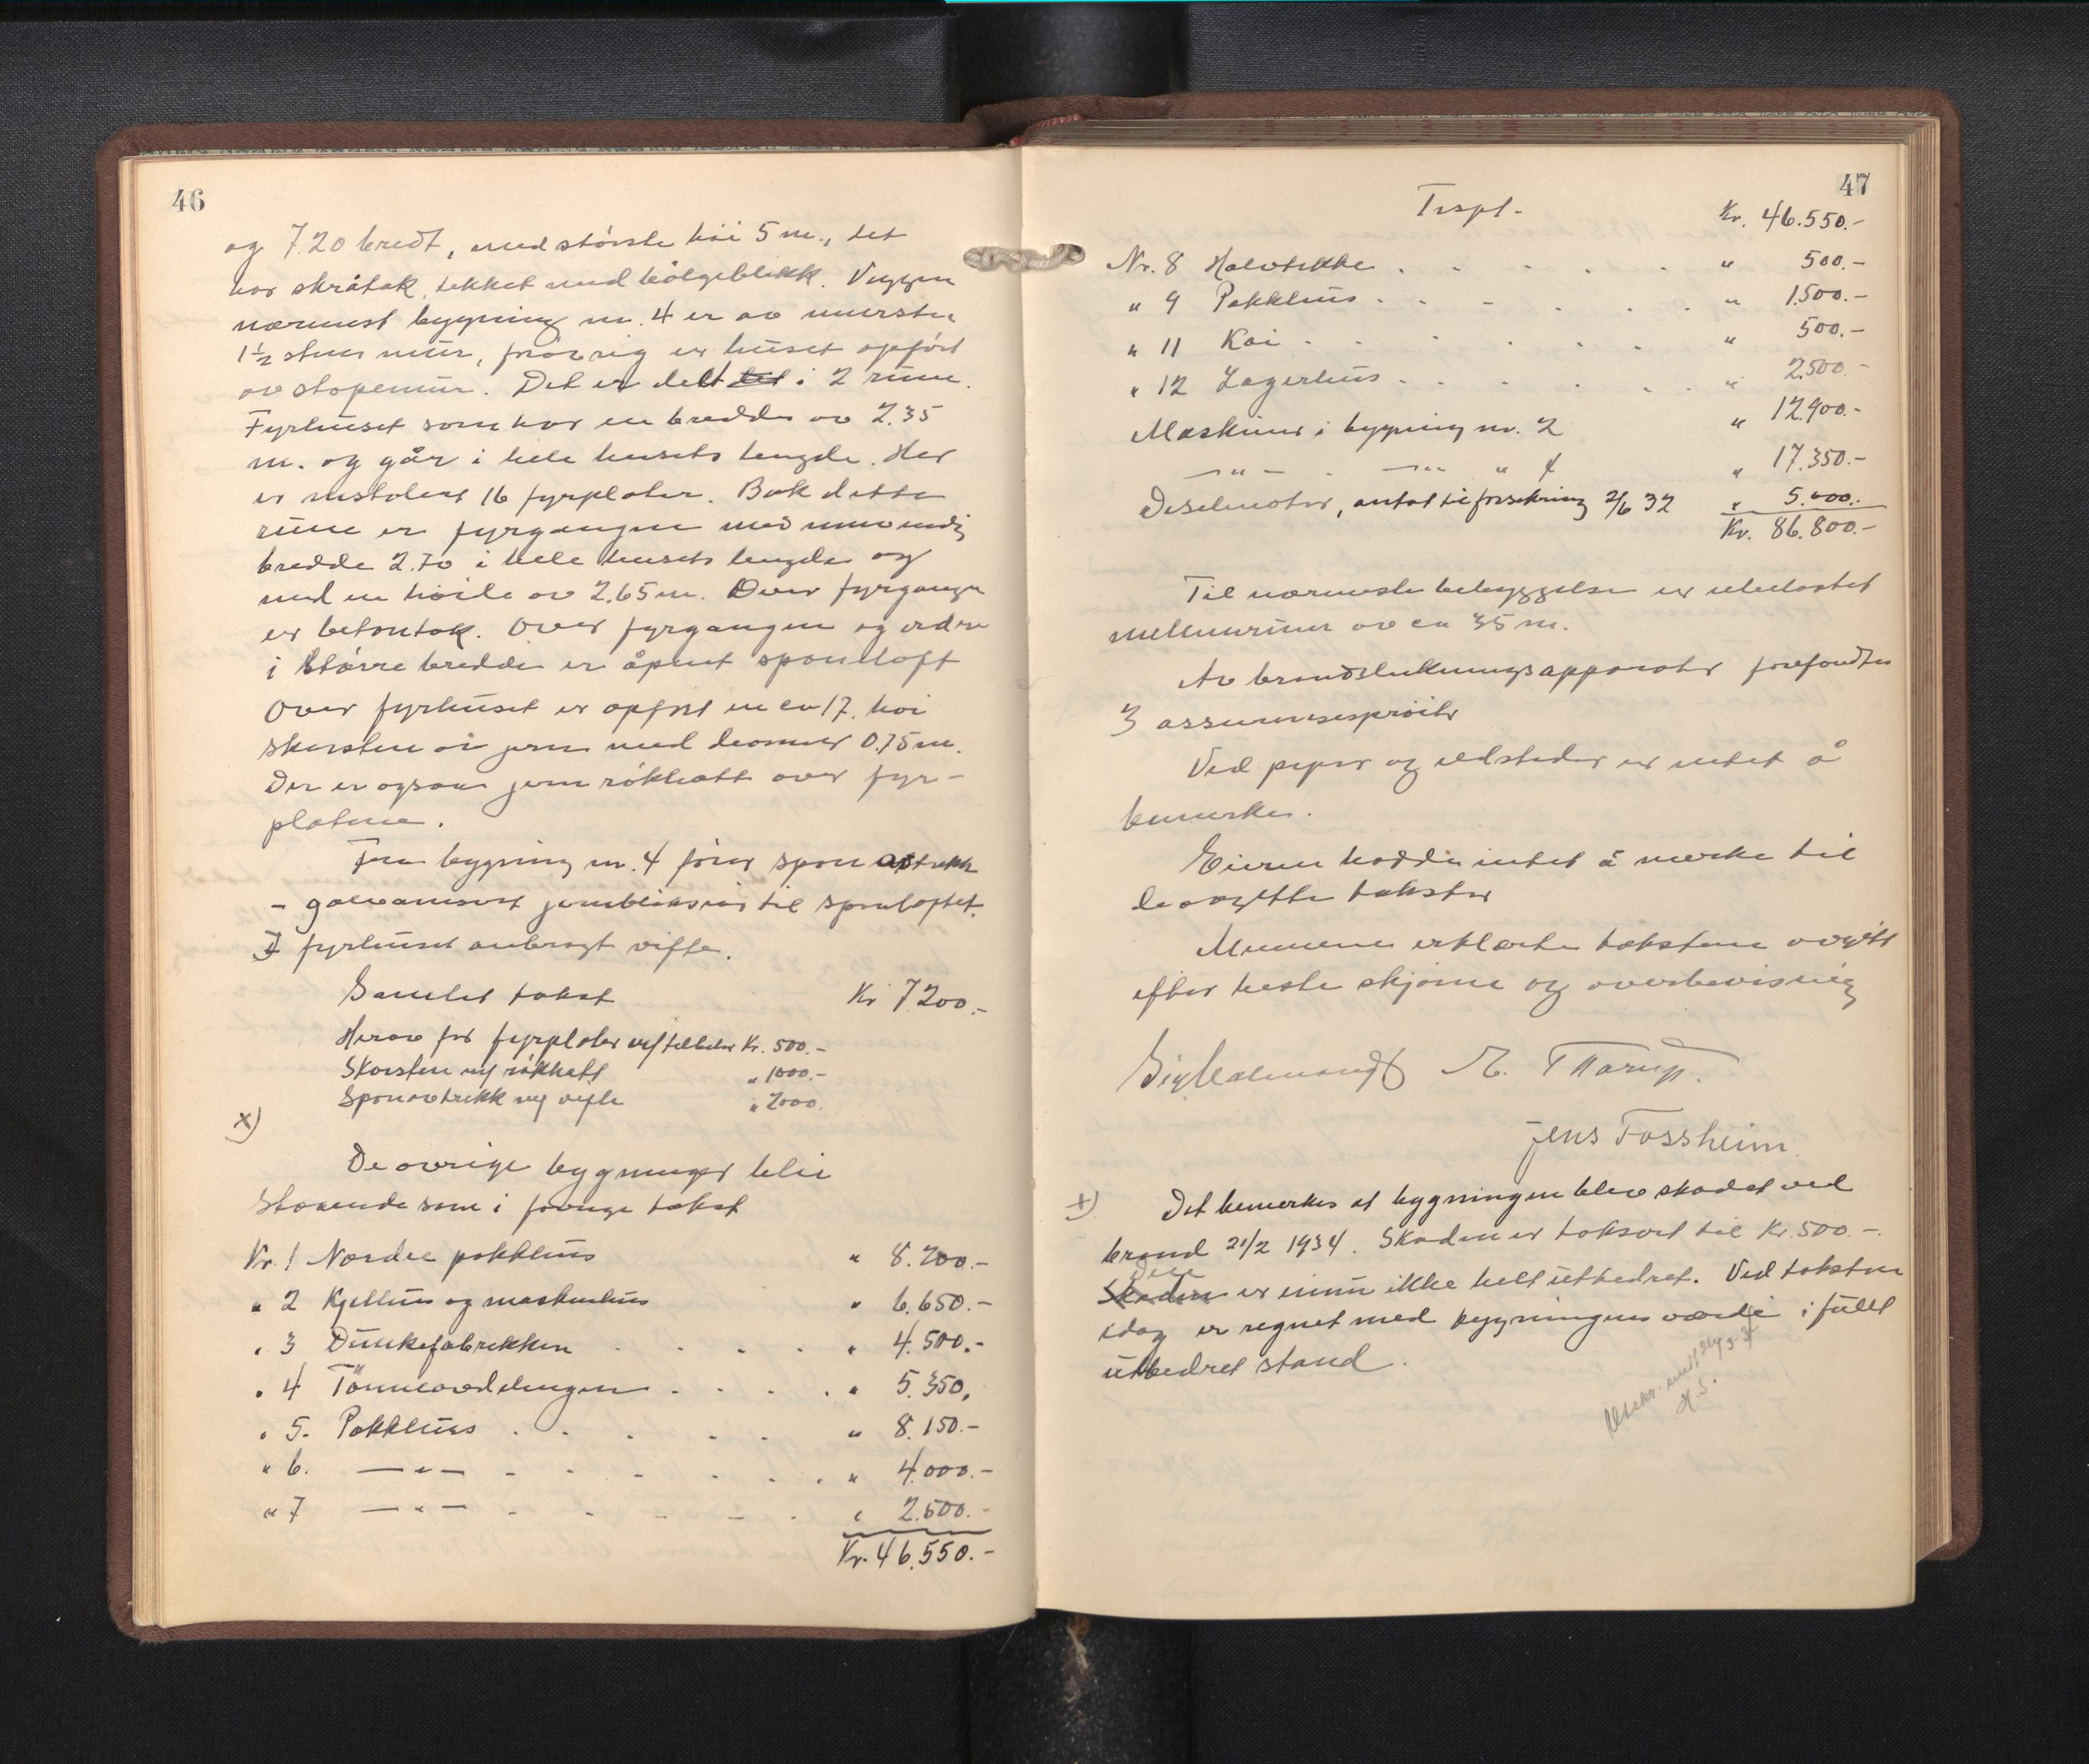 46
og 7.20 bredt, med største höi 5 m., det
har skråtak, tekket med bølgeblikk. Veggen
nærmest bygning nr. 4 er av murste
1½ stens mur, forøvrig er huset opført
av støpemur. Det er delt det i 2 rum.
Fyrhuset som har en bredde av 2.35
m. og går i hele husets lengde. Her
er installert 16 fyrplater. Bak dette
rum er fyrgangen med innvendig
bredde 2.70 i hele husets lengde og
med en höide av 2.65 m. Over fyrgangen
er betontak. Over fyrgangen og
i större bredde er åpent sponloft
Over fyrhuset er opført en ca 17. höi
skorsten av jern med diameter 0.75 m.
Der er ogsaa jern rökhatt over fyr-
platene.
Fra bygning nr. 4 förer spon avtrekk
- galvanisert til sponloftet.
I fyrhuset anbragt vifte.
Samlet takst Kr 7200.-
Herav for fyrplater m/tilbehør Kr. 500.-
Skorsten m/ rökhatt " 1000.-
Sponavtrekk m/ vifte " 2000.
x)
De øvrige bygninger blir
staaende som i forrige takst
Nr. 1 Nordre pakkhus " 8.200.-
" 2 Kjelhus og maskinhus " 6.650.-
" 3 Dunkefabrikken . . . . " 4.500.-
" 4 Tönneavdelingen . . . . " 5.350,
" 5. Pakkhus . . . . . " 8.150.-
" 6. —"— - - - . . . " 4.000.-
" 7 —"— - - - - . " 2.500.-
Kr. 46.550.-
47
Trspt. Kr. 46.550.-
Nr. 8 Halvtekke . . . . . " 500.-
" 9 Pakkhus . . - . . . " 1.500.-
" 11 Kai . . . . . . " 500.-
" 12 Lagerhus . . . . . . " 2.500.-
Maskiner i bygning nr. 2 " 12.900.-
—"— . —"— " 4 " 17.350.-
Deselmotor, antat til forsikring 2/6 32 " 5.000.-
Kr. 86.800.-
Til nærmeste bebyggelse er ubelastet
mellemrum av ca 35 m.
Av brandslukningsapparater forefandtes
3 assuransesprøiter
Ved piper og ildsteder er intet å
bemerke.
Eieren hadde intet å merke til
de avgitte takster
Mennene erklærte takstene avgitt
efter beste skjønn og overbevisning
Sig Malmangt M. Tharup.
Jens Fossheim.
x) Det bemerkes at bygningen blev skadet ved
brand 21/2 1934. Skaden er taksert til Kr. 500.-.
Den
Skaden er ennu ikke helt utbedret. Ved taksten
idag er regnet med bygningens værdi i fullt
utbedret stand.
H.S.